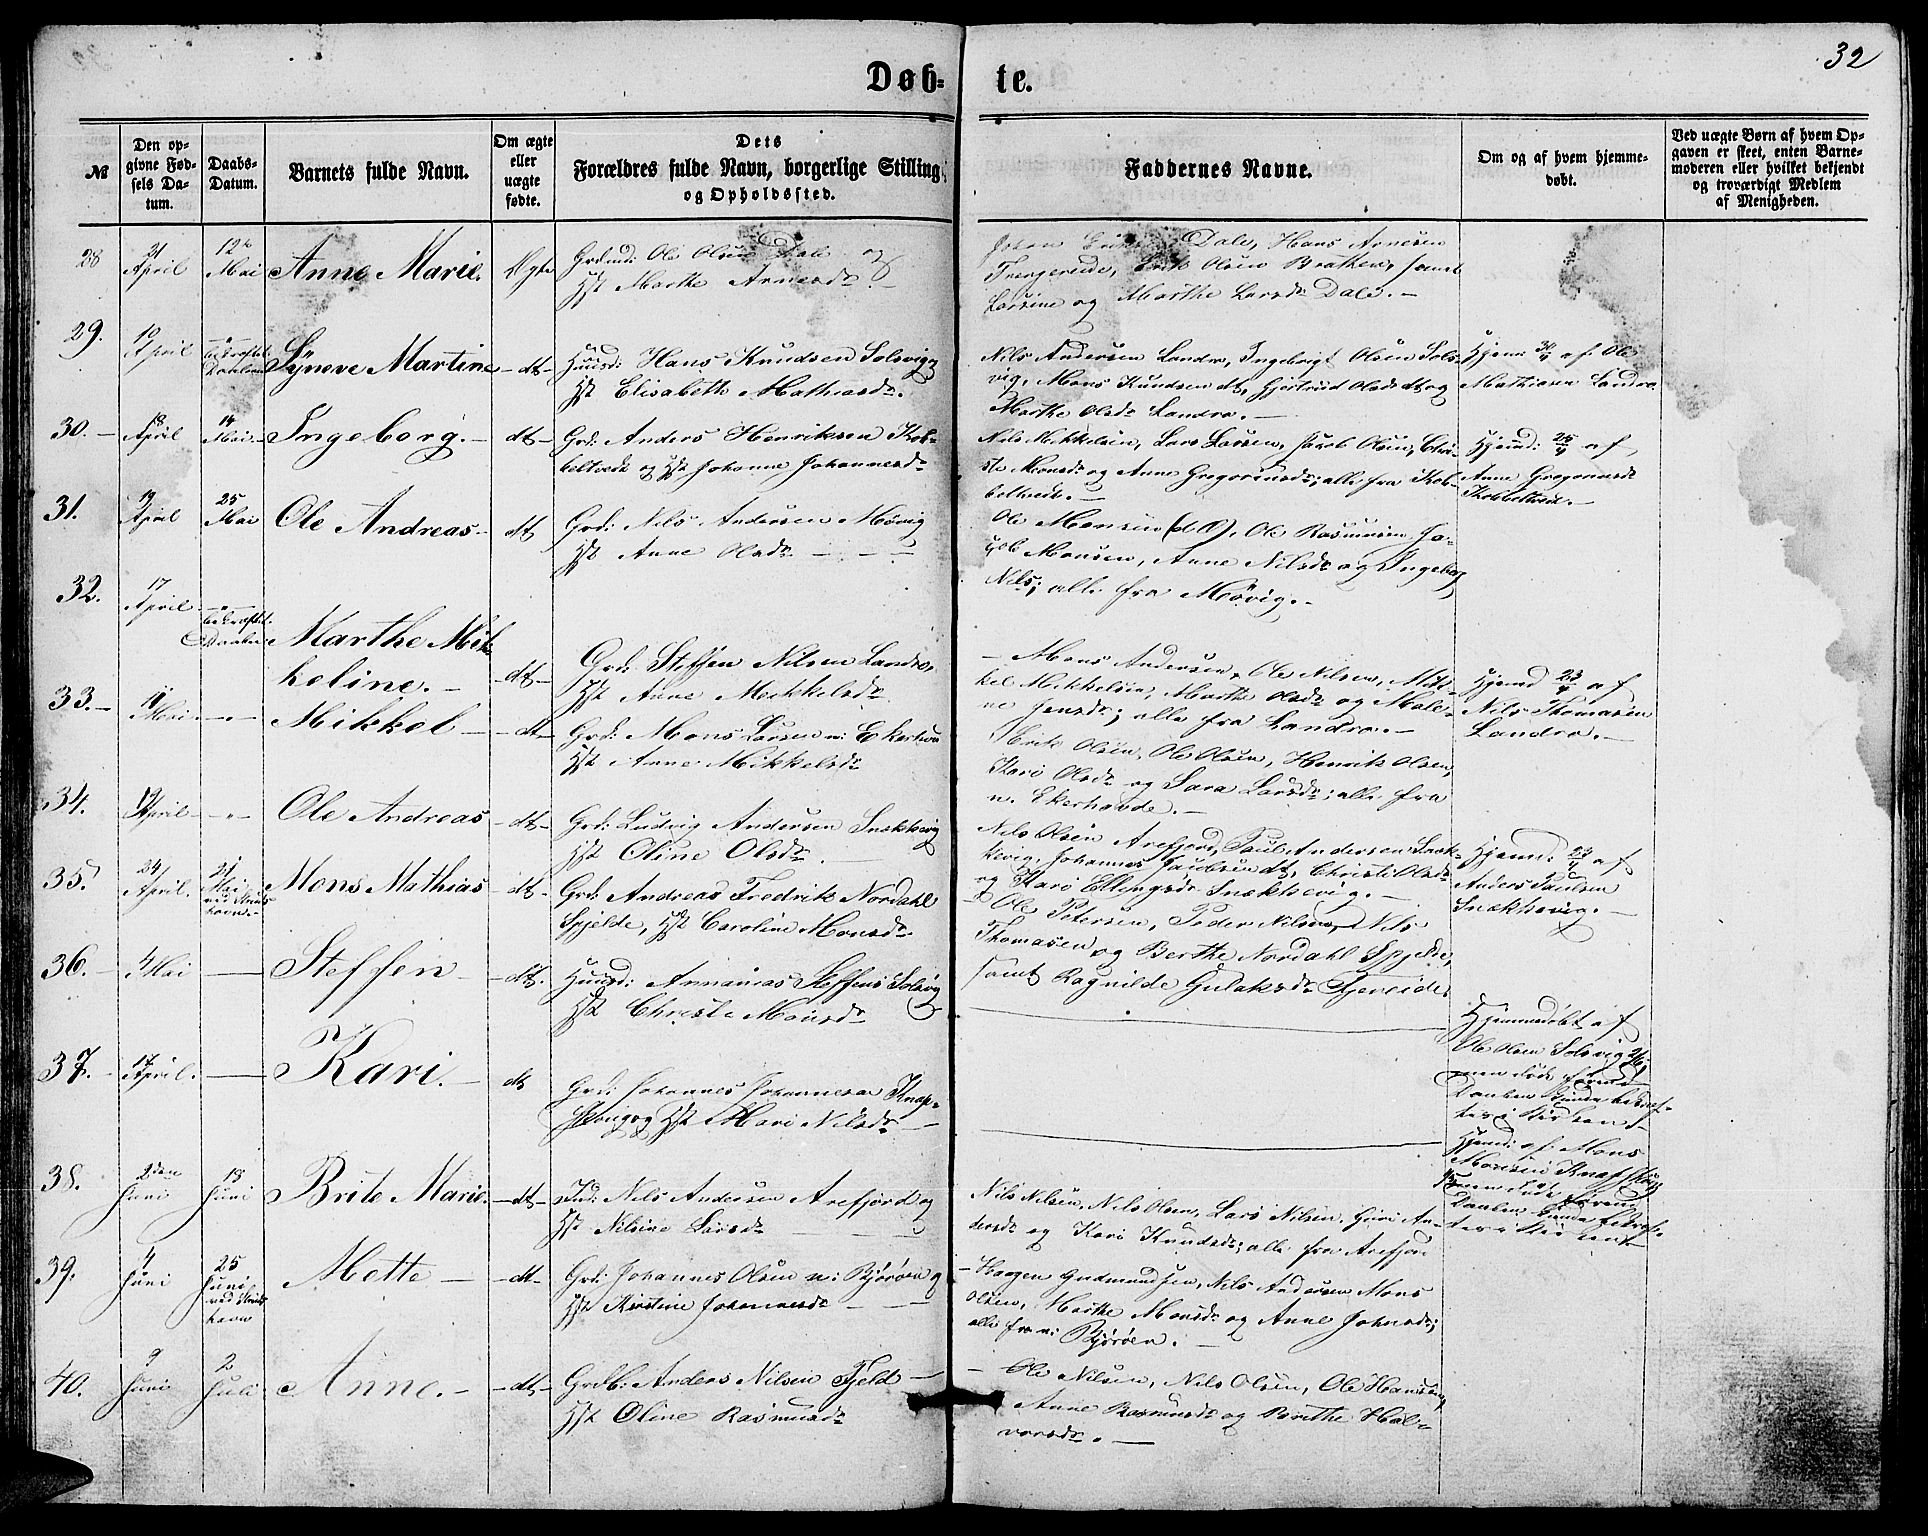 32
Døb- te.
№
Den op-
givne Fød-
sels Da-
tum.
Daabs-
Datum.
Barnets fulde Navn.
Om ægte
eller
uægte
fødte.
Dets
Forældres fulde Navn, borgerlige Stilling
og Opholdssted.
Faddernes Navne.
Om og af hvem hjemme-
døbt.
Ved uægte Børn af hvem Op-
gaven er skeet, enten Barne-
moderen eller hvilket bekjendt
og troværdigt Medlem
af Menigheden.
28
21
April
12
Mai
Anne Marie.
Ole Olsen Dale og
Hst Marthe Arnesdr
Dale, Hans Arnesen
Erik Olsen Bråthen, samt
Larsine og Marthe Larsdr Dale. –
29.
10
April
Syneve Martine
– dt –
Huusd: Hans Knudsen Solsvig og
Hst Elisabeth Mathiasdr.
Nils Andersen Landro, Ingebrigt Olsen Sols-
vig, Mons Knudsen dt, Gjertrud Olsdr dt og
Marthe Olsdr Landro. –
Hjemd: 30/4 af Ole
Mathiasen Landro
30. –
18
April
14
Mai. –
Ingeborg. –
dt –
Grd: Anders Henriksen Kob-
beltvedt og Hst Johanne Johannesdr
Nils Mikkelsen, Lars Larsen, Jacob Olsen, Chri-
ste Monsdr og Anne Gregoriusdr; alle fra Kob-
beltvedt. –
Hjemd: 25/4 af
Anne Gregoriusdr
Kobbeltvedt. –
31.
19
April
25
Mai
Ole Andreas –
dt
Grd: Nils Andersen Møvig
Hst Anne Olsdr – – –
Ole Monsen, Ole Rasmusen, Ja-
cob Monsen, Anne Nilsdr og Ingeborg
Nilsdr; alle fra Møvig. –
32.
17
April
Marthe Mik-
keline. –
– dt –
Grd: Steffen Nilsen Landro,
Hst Anne Mikkelsdr
– Mons Andersen, Ole Nilsen, Mik-
kel Mikkelsen, Marthe Olsdr og Male-
ne Jensdr; alle fra Landro. –
Hjemd 23/4 af
Nils Thomasen
Landro. –
33. –
11
Mai
– " –
Mikkel –
– dt –
Grd: Mons Larsen n: Ekerhovd
Hst Anne Mikkelsdr
Erik Olsen, Ole Olsen, Henrik Olsen,
Kari Olsdr og Sara Larsdr; alle fra
n. Ekerhovde. –
34.
19
April –
– " –
Ole Andreas
– dt –
Grd: Ludvig Andersen Snekkevig
Hst Oline Olsdr.
Nils Olsen Arefjord, Paul Andersen Snek-
kevig, Johannes Jacobsen dt, Christi Olsdr
og Kari Ellingsdr Snekkevig. –
Hjemd: 27/4 af
Anders Paulsen
Snekkevig. –
35.
24
April.
21
Mai
Mons Mathias
dt –
Grd: Andreas Fredrik Nordahl
Spjelde, Hst Caroline Monsdr
– Ole Petersen, Peder Nilsen, Nils
Thomasen og Berthe Nordahl Spjelde,
samt Ragnilde Gulaksdr Fjereide.
36. –
4 Mai
Steffen
– dt.
Huusd: Annanias Steffens Solsvig
Hst Christi Monsdr
Hjemmedøbt af
Ole Olsen Solsvig
37. –
17
April.
Kari. –
dt
Grd: Johannes Johannesen Knap-
skoug og Hst Mari Nilsdr –
Hjemd: af Mons
Monsen Knapskog
38.
2den
Juni
18
Juni
Brite Marie.
– dt –
Ind: Nils Andersen Arefjord og
Hst Nilsine Larsdr
Nils Nilsen, Nils Olsen, Lars Nilsen, Guri An-
dersdr og Kari Knudsdr; alle fra Arefjord
39.
4
Juni
25
Juni
Mette –
– dt –
Grd: Johannes Olsen n: Bjørøen og
Hst Kirstine Johannesdr – –
– Haagen Gudmundsen, Nils Andersen, Mons
Olsen, Marthe Monsdr og Anne Johnsdr;
alle fra n: Bjørøen. –
40.
9
Juni
2
Juli
Anne. –
– dt –
Grdb: Anders Nilsen Fjeld –
Hst Oline Rasmusdr
– Ole Nilsen, Nils Olsen, Ole Hansen,
Anne Rasmusdr og Brithe Hal-
vorsdr. –